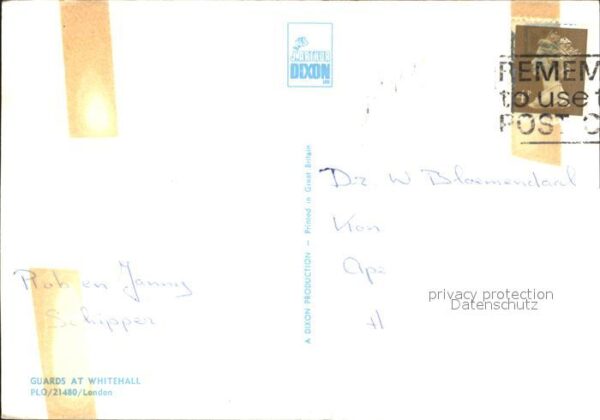 J. ARTHUR
DIXON
REMEM
to use t
POST C
Dr. W Bloemendaal
Kon
Ape
H
privacy protection
Datenschutz
Rob en Janny
Schipper
A DIXON PRODUCTION — Printed in Great Britain
GUARDS AT WHITEHALL
PLO/21480/London